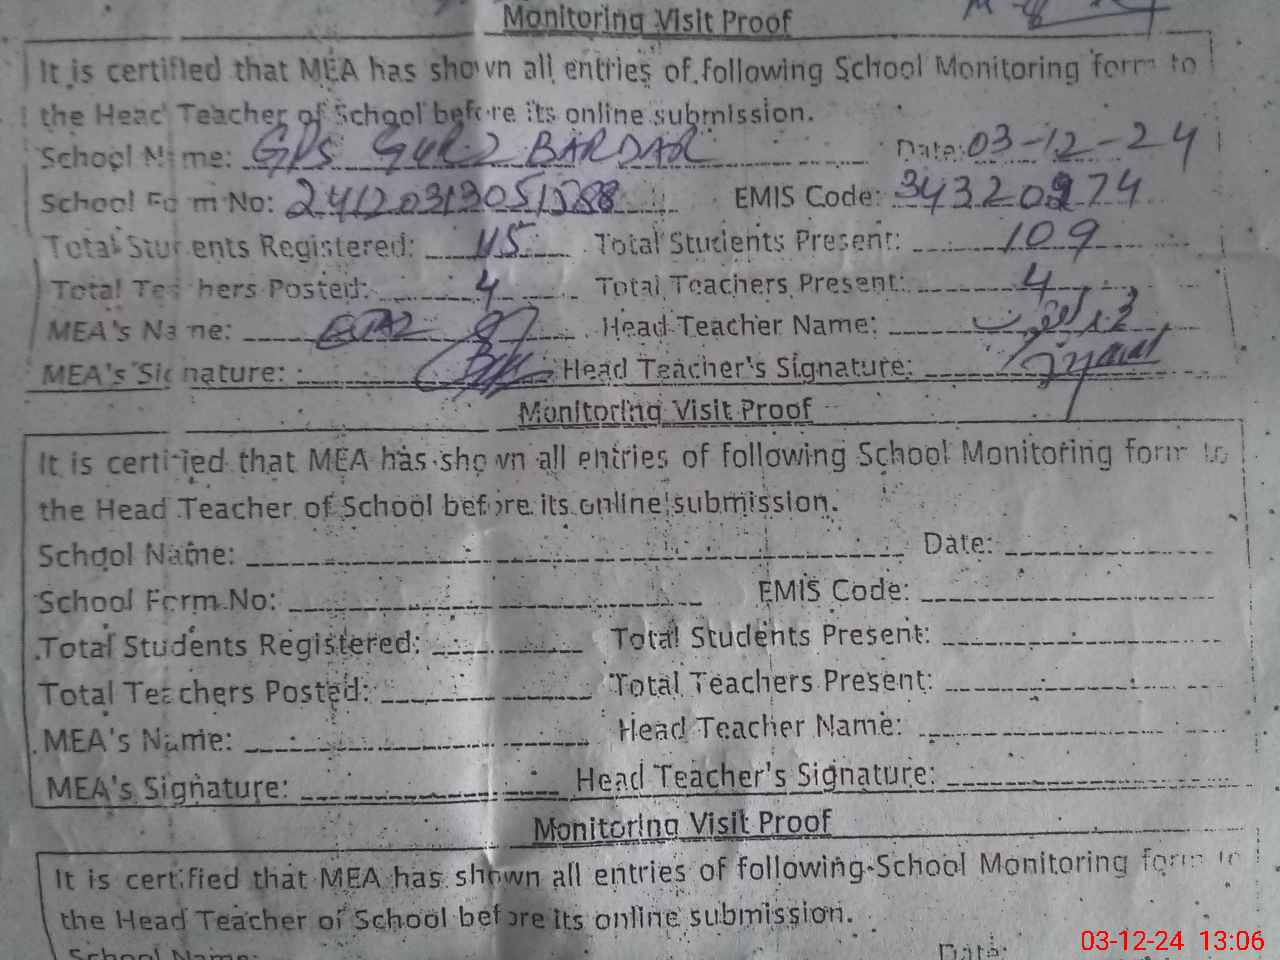 Monitoring Visit Proof
It is certified that MEA has shown all entries of following School Monitoring form to
the Head Teacher of School before its online submission.
School Name: GPS BARDAR Date: 03-12-24
School Form No: EMIS Code:
Total Students Registered: 115 Total Students Present: 109
Total Teachers Posted: 4 Total Teachers Present: 4
MEA's Name: Head Teacher Name:
MEA's Signature: Head Teacher's Signature:
Monitoring Visit Proof
It is certified that MEA has shown all entries of following School Monitoring form to
the Head Teacher of School before its online submission.
School Name: Date:
School Form No: EMIS Code:
Total Students Registered: Total Students Present:
Total Teachers Posted: Total Teachers Present:
MEA's Name: Head Teacher Name:
MEA's Signature: Head Teacher's Signature:
Monitoring Visit Proof
It is certified that MEA has shown all entries of following School Monitoring form to
the Head Teacher of School before its online submission.
School Name: Date:
03-12-24 13:06